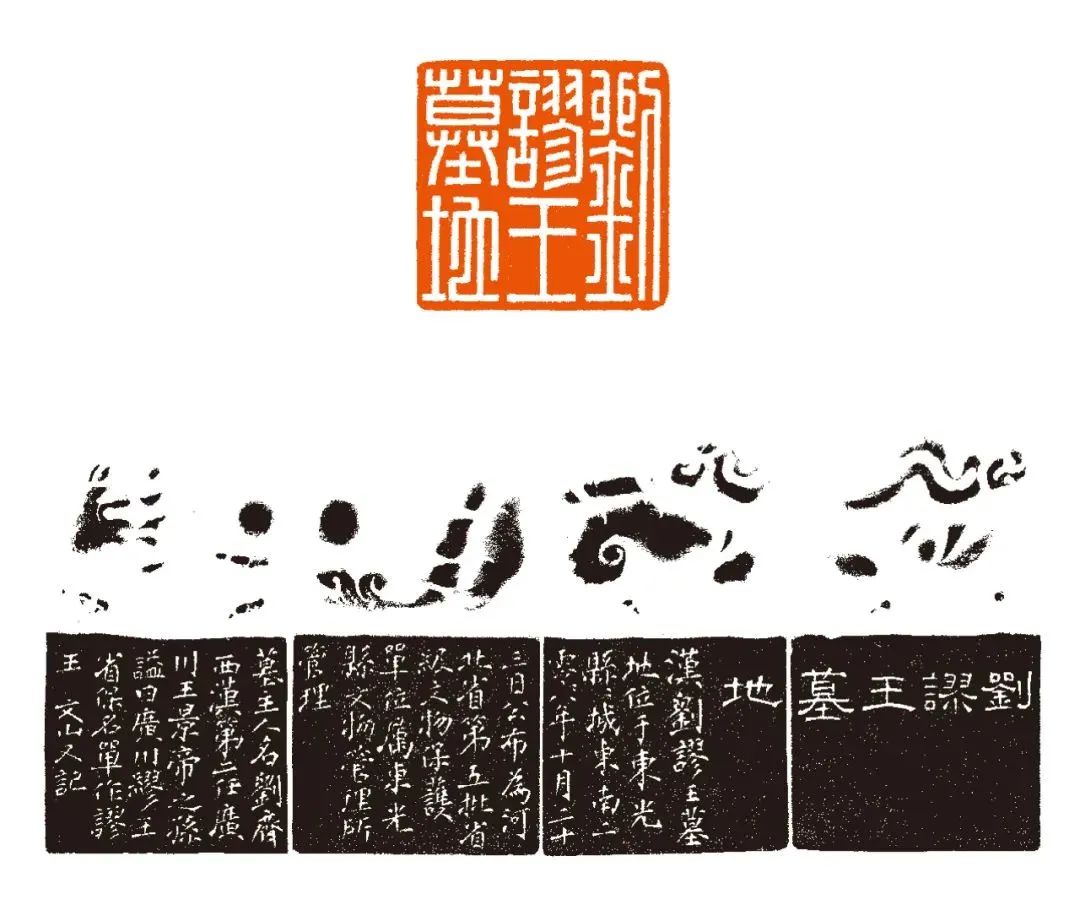 劉
謬王
墓地
劉謬王墓
地
漢劉謬王墓
地位于東光
縣城東南二
零零八年十月二十
三日公布為河
北省第五批省
級文物保護
單位屬東光
縣文物管理所
管理
墓主人名劉齊
西漢第二任廣
川王景帝之孫
謚曰廣川繆王
省保名單作謬
王 又記